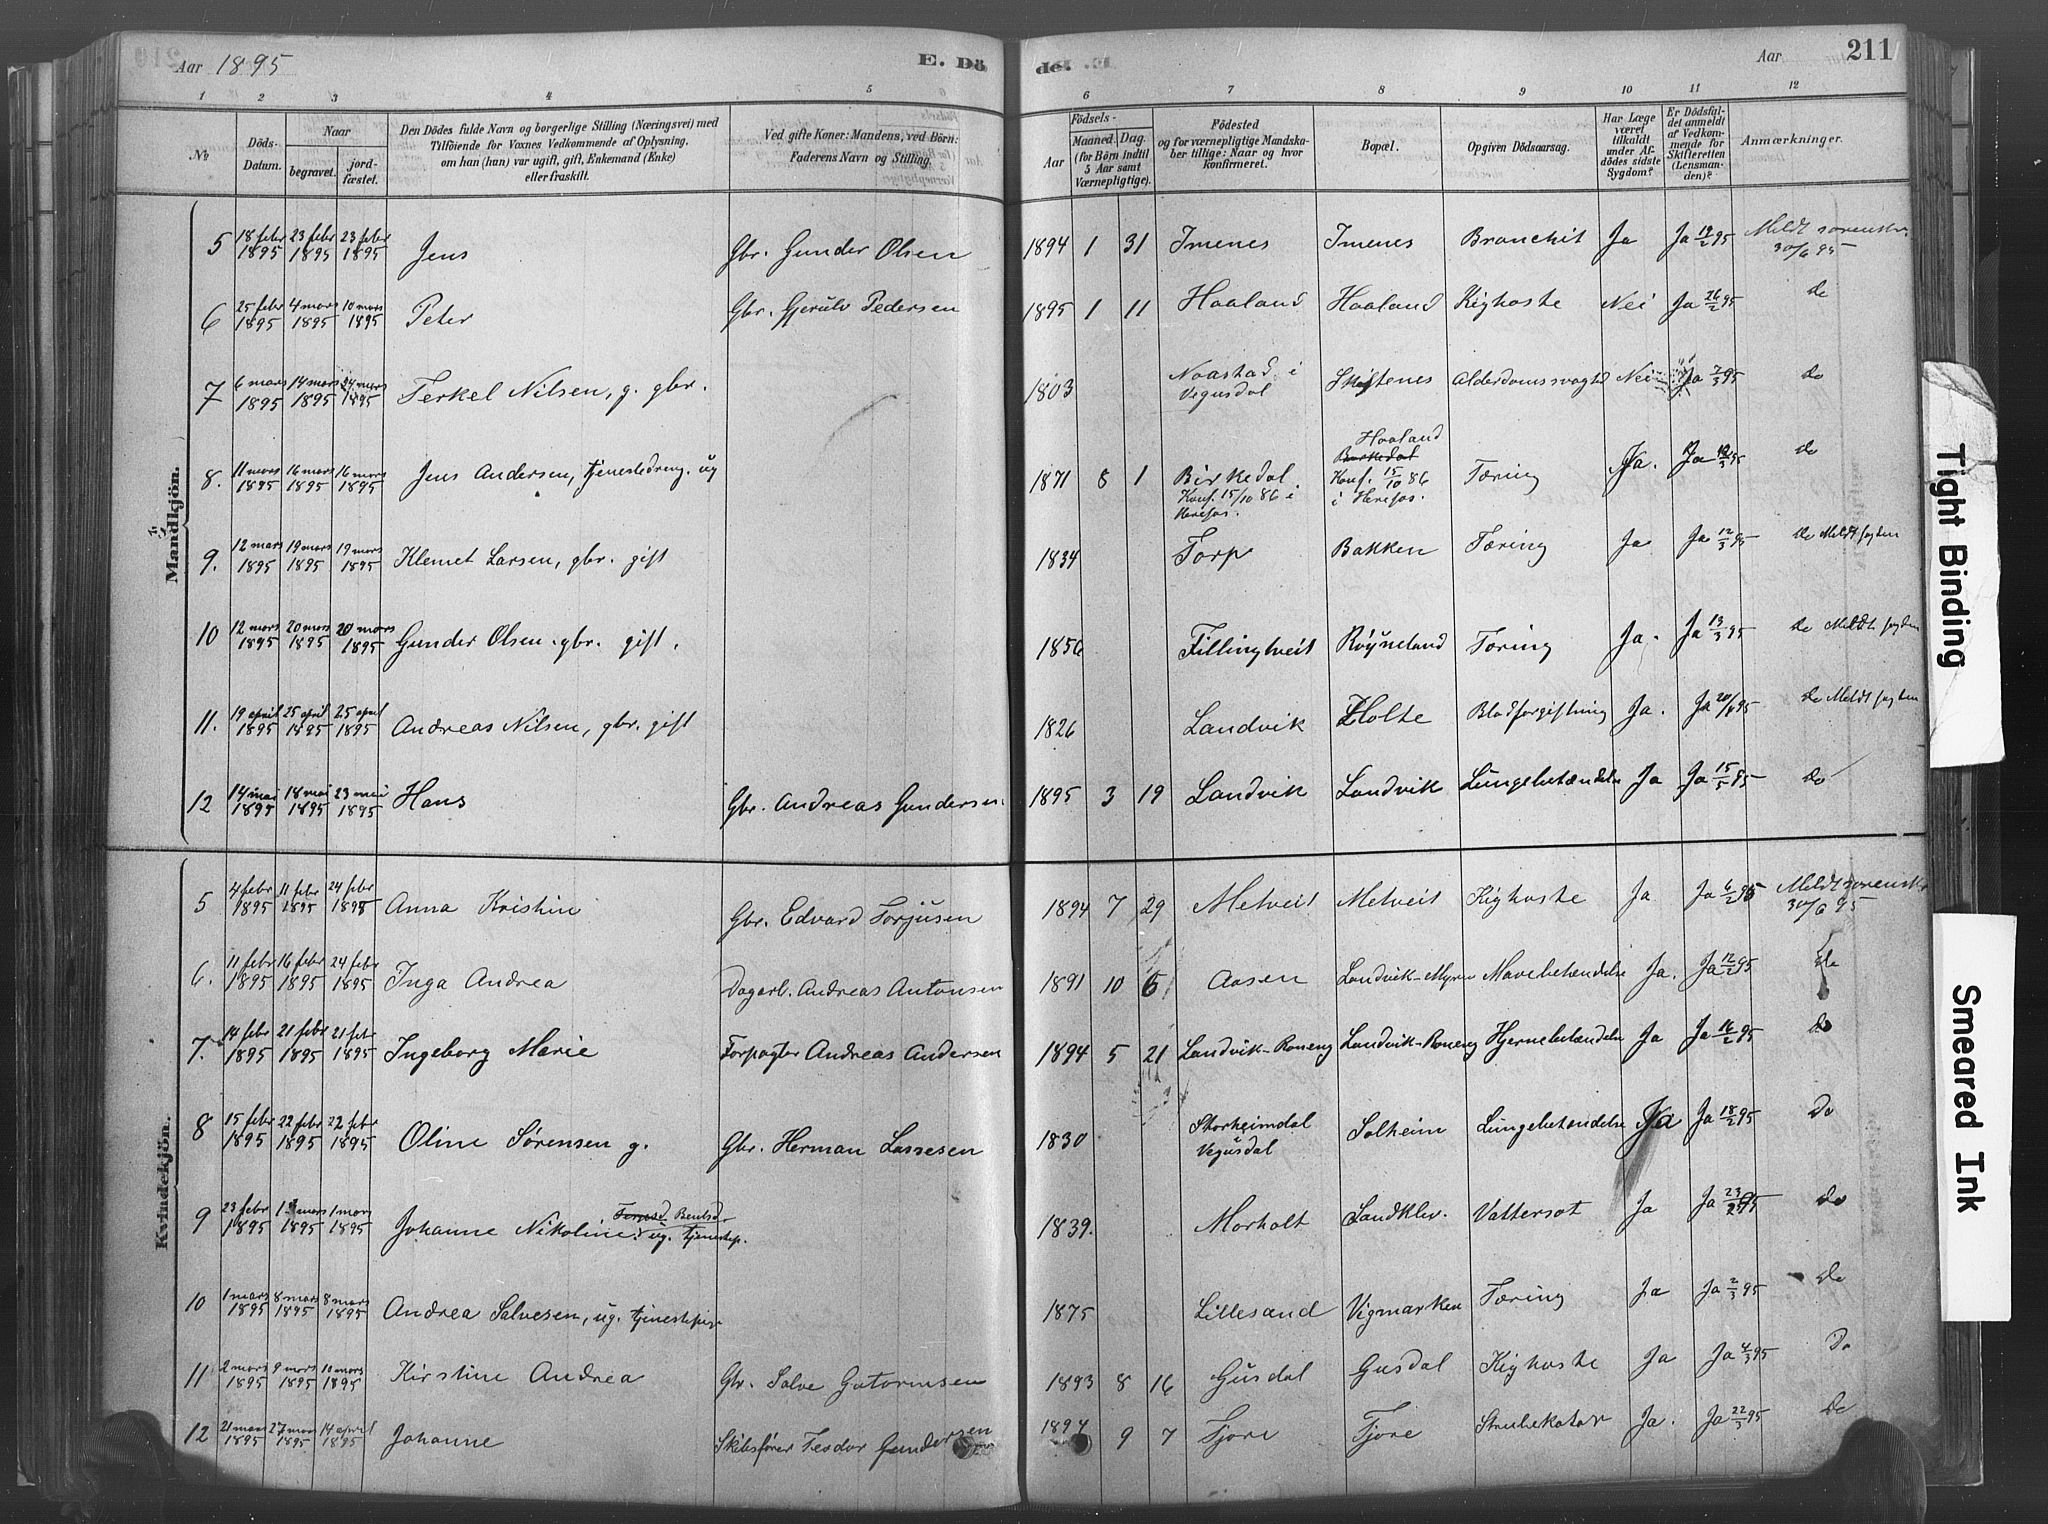 Aar 1895
E. Dö
de.
Aar
211
1 2 3 4 5 6 7 8 9 10 11 12
№
Döds-Datum.
Naar
begravet.
jord-fæstet.
Den Dödes fulde Navn og borgerlige Stilling (Næringsvei) med
Tilföiende for Voxnes Vedkommende af Oplysning,
om han (hun) var ugift, gift, Enkemand (Enke)
eller fraskilt.
Ved gifte Koner: Mandens, ved Börn:
Faderens Navn og Stilling.
Födsels-
Aar
Maaned. Dag.
(for Börn indtil
5 Aar samt
Værnepligtige).
Födested
og for værnepligtige Mandska-
ber tillige: Naar og hvor
konfirmeret.
Bopæl.
Opgiven Dödsaarsag.
Har Læge
været
tilkaldt
under Af-
dödes sidste
Sygdom?
Er Dödsfal-
det anmeldt
af Vedkom-
mende for
Skifteretten
(Lensman-
den)?
Anmærkninger.
Mandkjön.
5 18 febr 1895 23 febr 1895 23 febr 1895 Jens Gbr. Gunder Olsen 1894 1 31 Imenes Imenes Bronchit Ja Ja 19/2 95 Meldt sorenskr. 30/6 95
6 25 febr 1895 4 mars 1895 10 mars 1895 Peter Gbr. Gjerulv Pedersen 1895 1 11 Haaland Haaland Kighoste Nei Ja 26/2 95 Do
7 6 mars 1895 14 mars 1895 24 mars 1895 Terkel Nilsen, g. gbr. 1803 Naastad i Vegusdal Skiftenes Alderdomssvagh Nei Ja 7/3 95 Do
8. 11 mars 1895 16 mars 1895 16 mars 1895 Jens Andersen, tjenestedreng. ug 1871 8 1 Birkedal. Konf. 15/10 86 i Herefos. Haaland Birkedal Konf. 15/10 86 i Herefos. Tæring Ja. Ja 12/3 95 Do
9. 12 mars 1895 19 mars 1895 19 mars 1895 Klemet Larsen, gbr. gift 1834 Torp Bakken Tæring Ja Ja 12/3 95 Do Meldt fogden
10 12 mars 1895 20 mars 1895 20 mars 1895 Gunder Olsen. gbr. gift. 1856 Fillingtveit Röyneland Tæring Ja. Ja 13/3 95 Do Meldt fogden
11. 19 april 1895 25 april 1895 25 april 1895 Andreas Nilsen, gbr. gift 1826 Landvik Holte Blodforgiftning Ja. Ja 20/4 95 Do Meldt fogden
12 14 mai 1895 18 mai 1895 23 mai 1895 Hans Gbr. Andreas Gundersen. 1895 3 19 Landvik Landvik Lungebetændelse Ja Ja 15/5 95 Do
Kvindekjön.
5 4 febr 1895 11 febr 1895 24 febr 1895 Anna Kristine Gbr. Edvard Torjusen 1894 7 29 Metveit Metveit Kighoste Ja Ja 6/2 95 Meldt sorenskr 30/6 95
6. 11 febr 1895 16 febr 1895 24 febr 1895 Inga Andrea Dagarb. Andreas Antonsen 1891 10 6 Aasen Landvik-Myren Mavebetændelse Ja. Ja 12/2 95 Do
7. 14 febr 1895 21 febr 1895 21 febr 1895 Ingeborg Marie Forpagter Andreas Andersen 1894 5 21 Landvik-Roneng Landvik-Roneng Hjernebetændelse Ja Ja 16/2 95 Do
8 15 febr 1895 22 febr 1895 22 febr 1895 Oline Sørensen g. Gbr. Herman Lassesen 1830 Storheimdal Vegusdal Solheim Lungebetændelse Ja Ja 18/2 95 Do
9 23 febr 1895 1 mars 1895 1 mars 1895 Johanne Nikoline Bentsd. ug. tjenestep. 1839. Morholt Sandklev. Vattersot Ja Ja 23/2 95 Do
10 1 mars 1895 8 mars 1895 8 mars 1895 Andrea Salvesen, ug. tjenestepige 1875 Lillesand Vigmarken Tæring Ja Ja 2/3 95 Do
11 2 mars 1895 9 mars 1895 10 mars 1895 Kirstine Andrea Gbr. Salve Gutormsen 1893 8 16 Gusdal Gusdal Kighoste Ja Ja 4/3 95 Do
12 21 mars 1895 27 mars 1895 14 april 1895 Johanne Skibsfører Tesdor Gundersen 1894 9 7 Tjore Tjore Strubekatar Ja. Ja 22/3 95 Do
Tight Binding
Smeared Ink